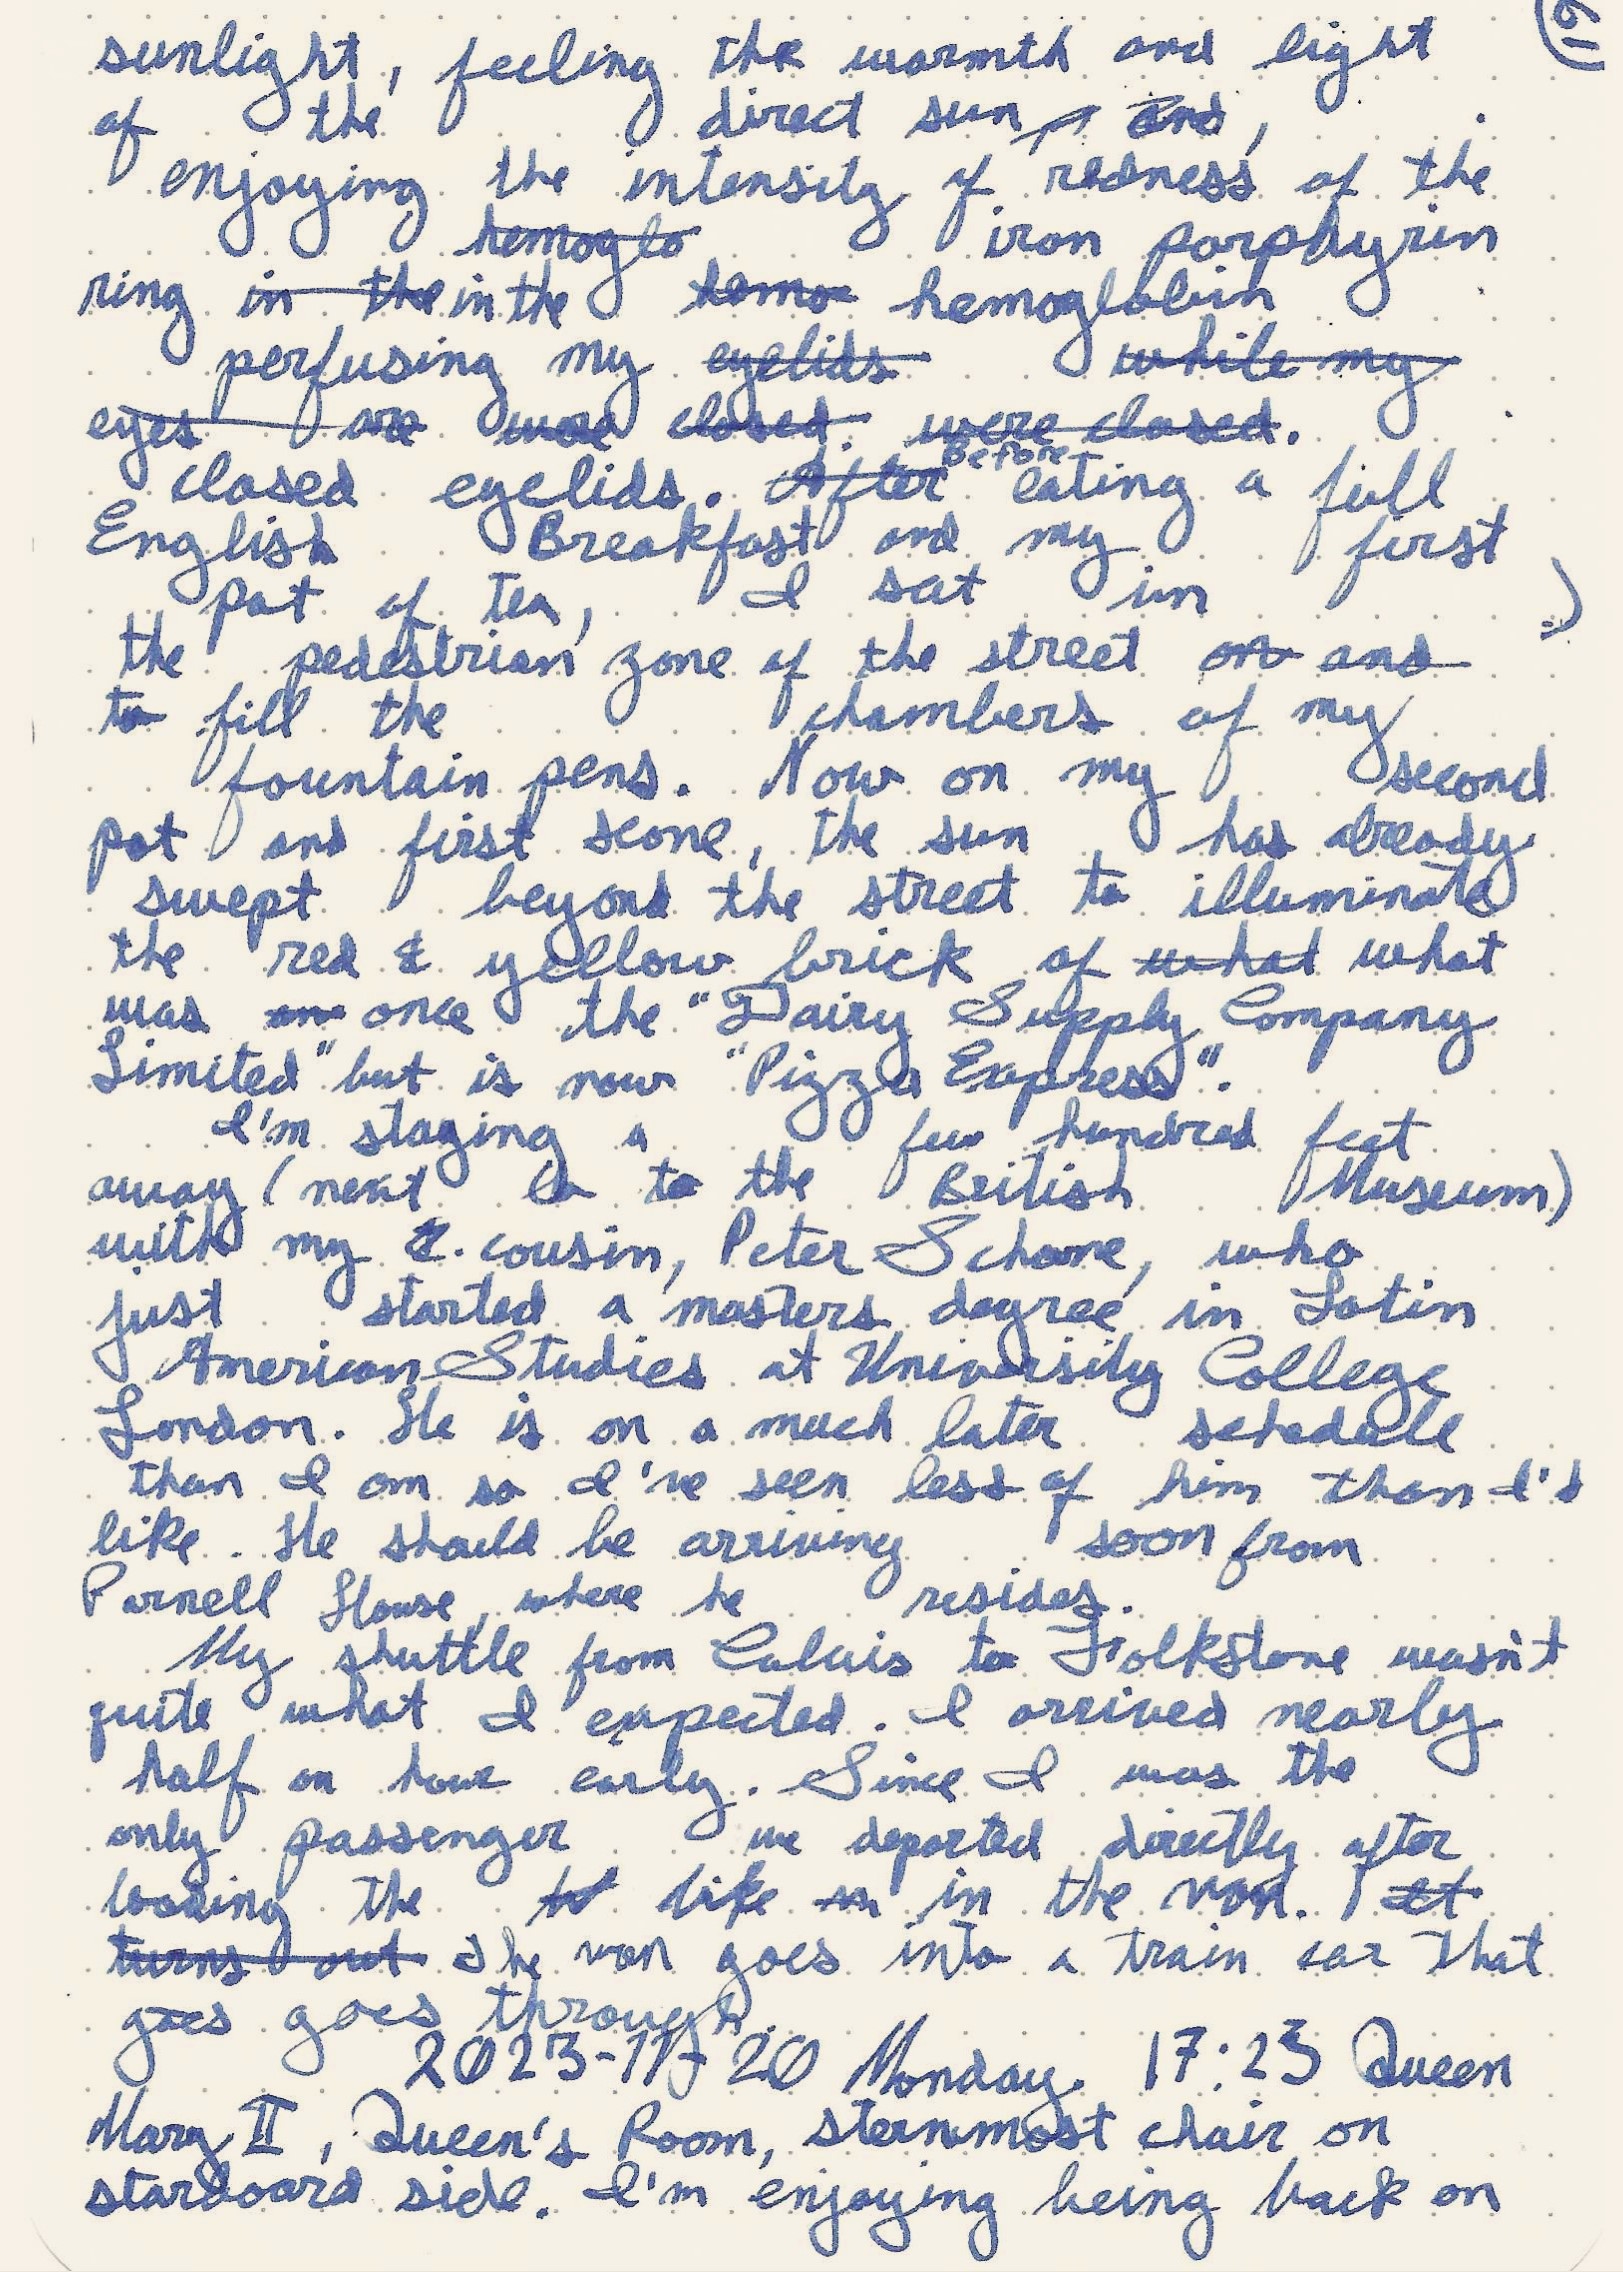 sunlight, feeling the warmth and light
of the direct sun, and,
enjoying the intensity of redness of the
hemoglo iron porphyrin
ring in the in the hemo hemoglobin
perfusing my eyelids while my
eyes are were closed. were closed.
closed eyelids. After Before eating a full
English Breakfast and my first
pot of tea, I sat in
the pedestrian zone of the street on and
to fill the chambers of my
fountain pens. Now on my second
pot and first scone, the sun has already
swept beyond the street to illuminate
the red & yellow brick of what what
was on once the "Dairy Supply Company
Limited" but is now "Pizza Express".
I'm staying a few hundred feet
away (next to to the British Museum)
with my cousin, Peter Schone, who
just started a masters degree in Latin
American Studies at University College
London. He is on a much later schedule
than I am so I've seen less of him than I'd
like. He should be arriving soon from
Parnell House, where he resides.
My shuttle from Calais to Folkstone wasn't
quite what I expected. I arrived nearly
half an hour early. Since I was the
only passenger we departed directly after
loading the bike in the van. It
turns out The van goes into a train car that
goes goes through
2023-11-20 Monday 17:23 Queen
Mary II, Queen's Room, sternmost chair on
starboard side. I'm enjoying being back on